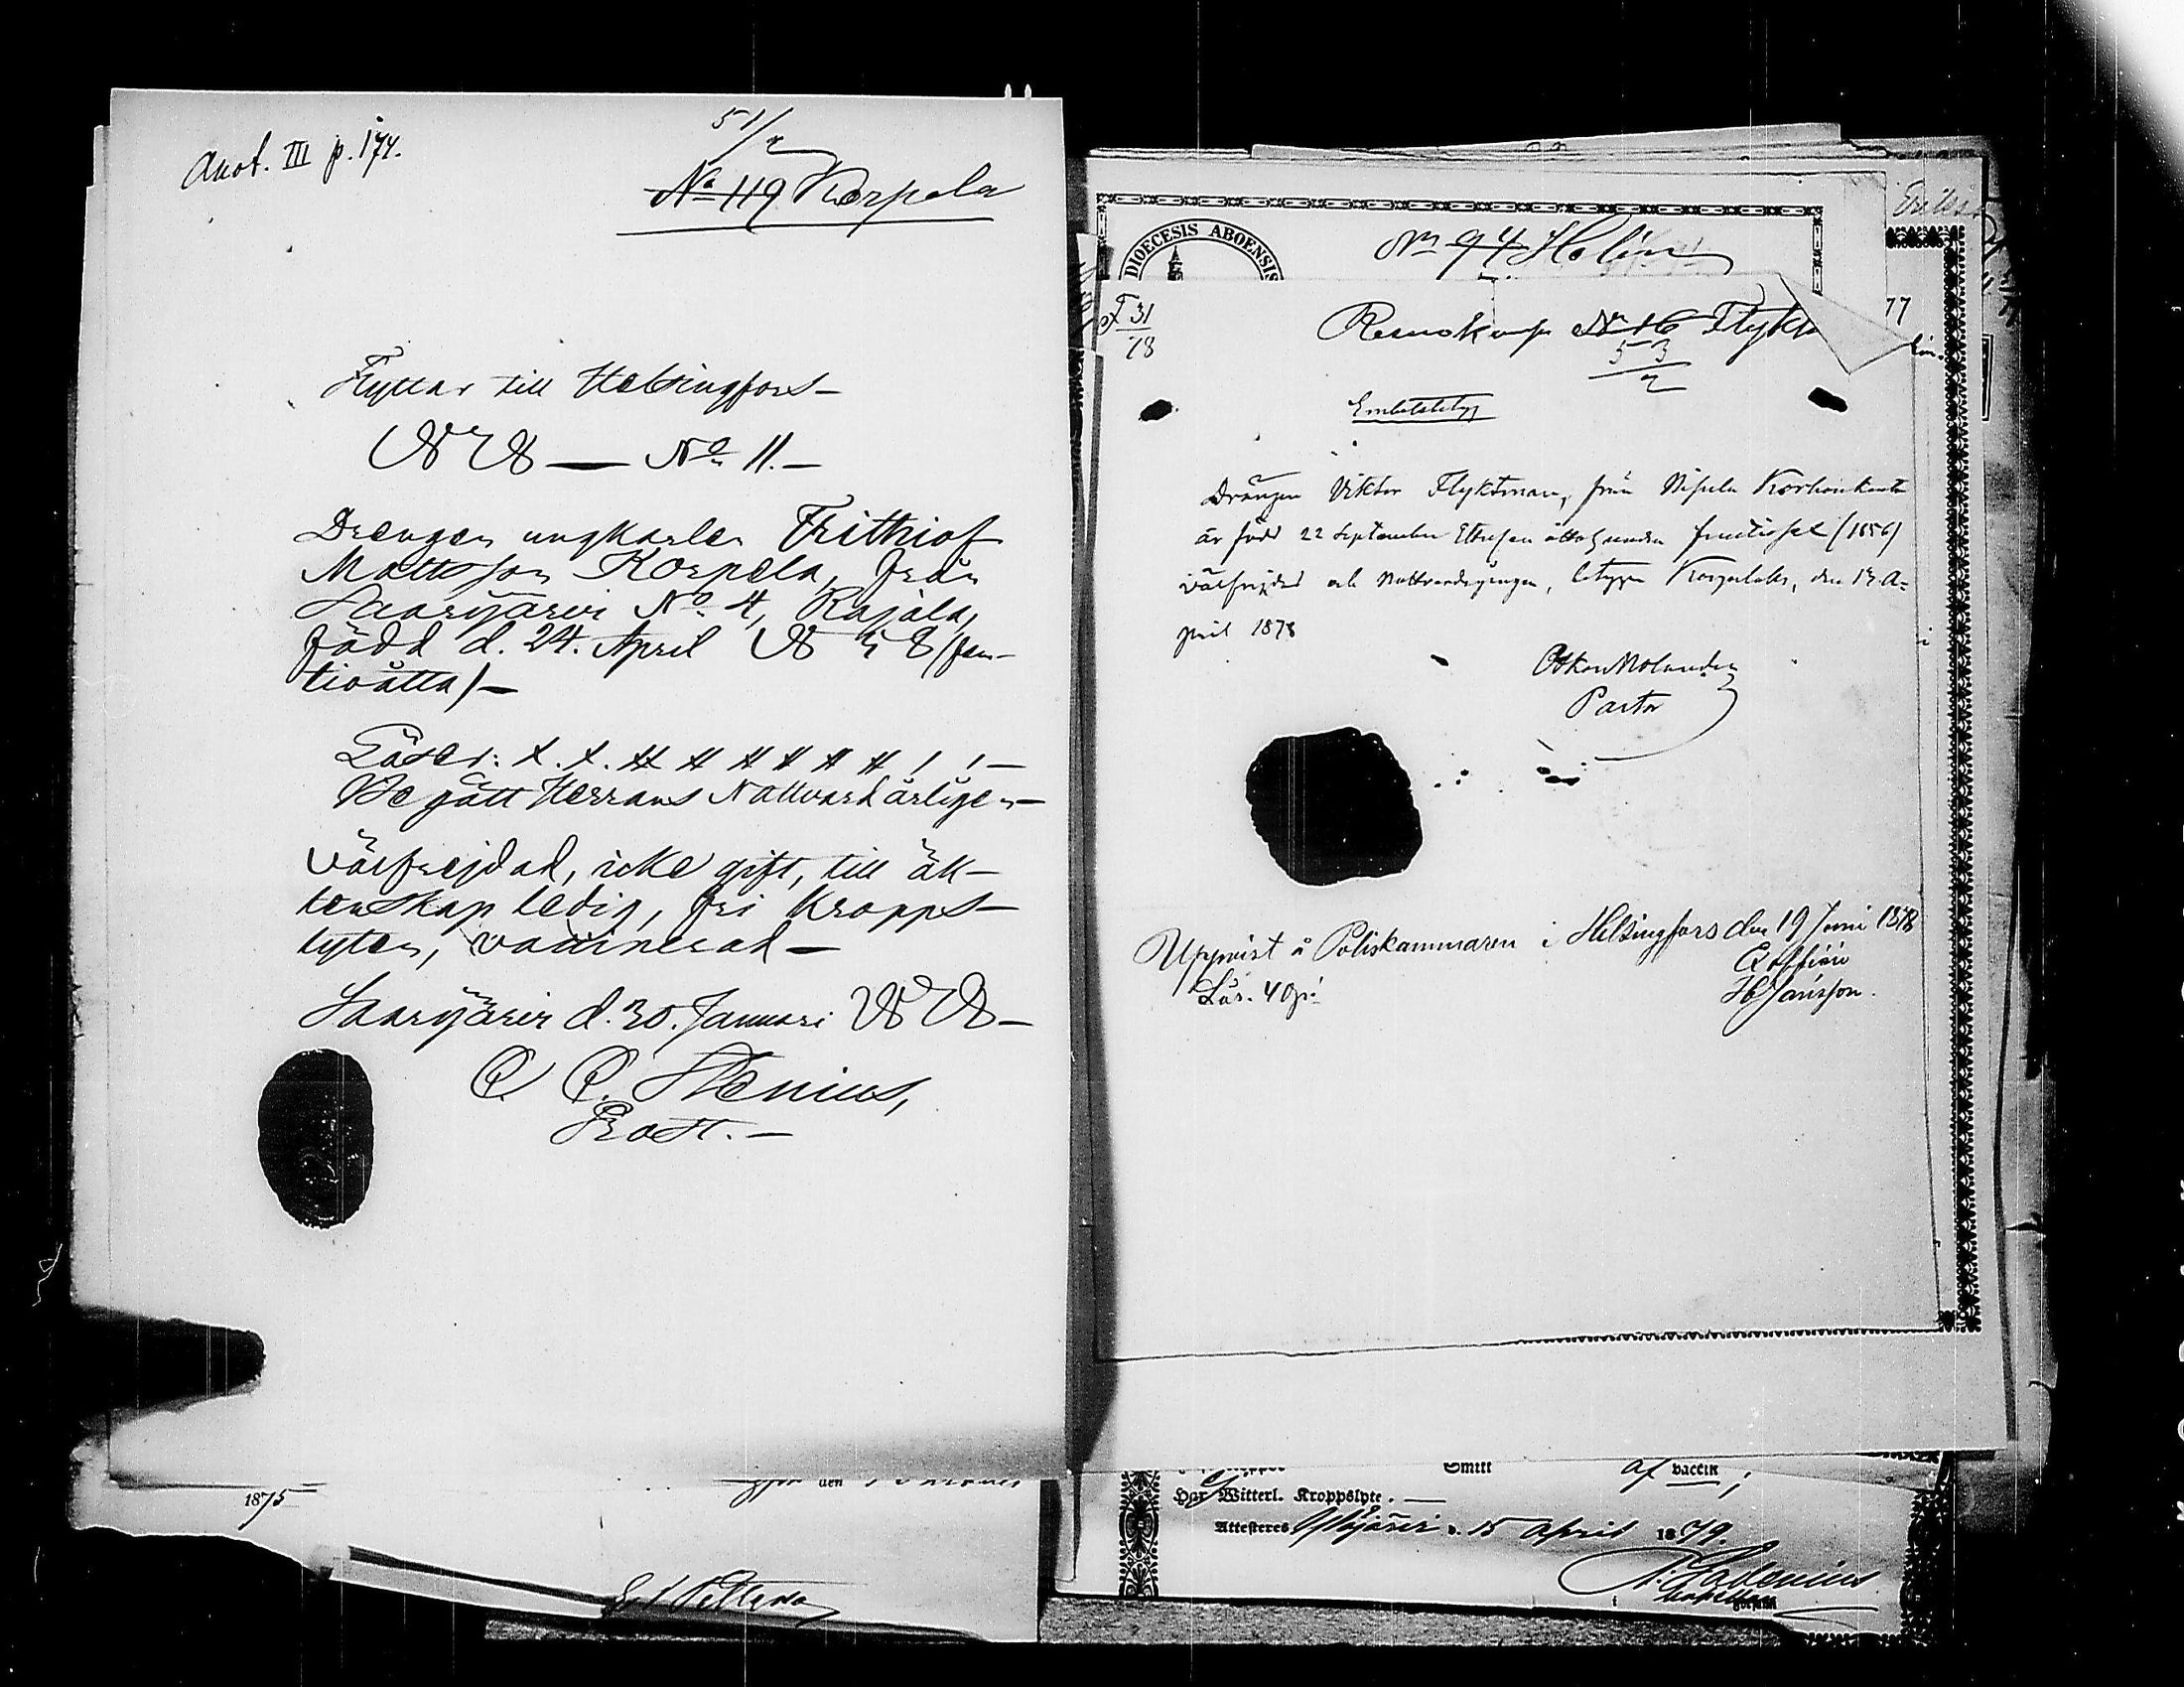 Anot. III p. 174.
51/2
No 119 Korpela
Flyttar till Helsingfors –
No 11. –
Drengen ungkarlen Frithiof
Mattsson Korpela, från
Saarijärvi No 4, Rajala,
född d. 24. April 58 (fem-
tioåtta) –
Läser: x. x.
Begått Herrans Nattvard årligen –
välfrejdad, icke gift, till äk-
tenskap ledig, fri kropps-
lyten, vaccinerad –
Saarijärvi d. 30. Januari
Stenius,
Prost. –
1875
den
DIOECESIS ABOENSIS
No 94 Holm
31
78
No 16 Flykt
53
2
Embetsbetyg
Drängen Viktor Flyktman, från
är född 22 September Ettusen åttahundra femtiosex (1856)
välfrejdad och Nattvardsgången, betygar Korpilaks, den 13. A-
pril 1878
Oskar Molander
Pastor
Uppvist å Poliskammaren i Helsingfors den 19 Juni 1878
Lös. 40 pi
Ex officio
Jansson.
77
Smitt
af vaccin ;
Har Witterl. Kroppslyte. —
Attesteres Ylöjärvi d. 15 April 1879.